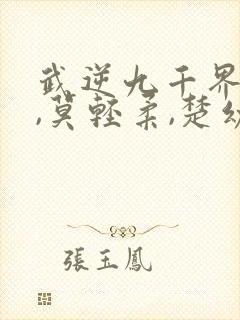 武逆九千界
,莫輕柔,楚幼
張玉鳳